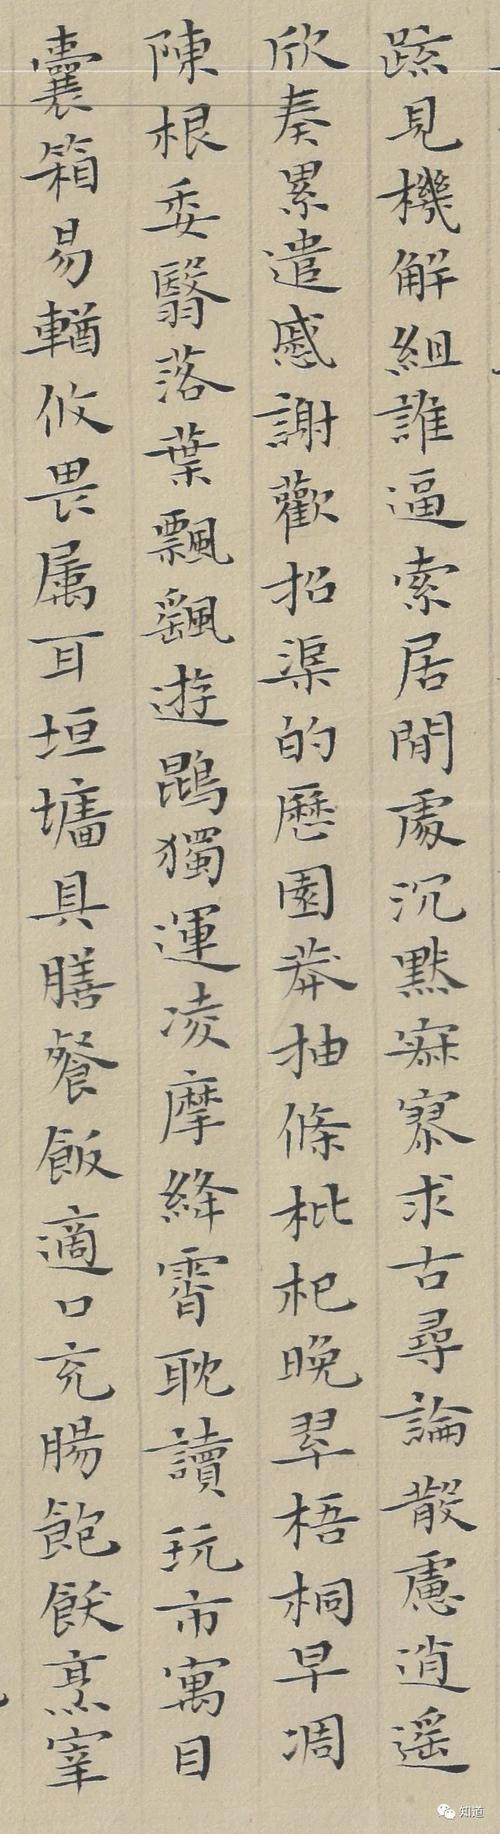 疏見機解組誰逼索居閒處沉默寂寥求古尋論散慮逍遥
欣奏累遣慼謝歡招渠的歷園莽抽條枇杷晚翠梧桐早凋
陳根委翳落葉飄颻遊鵾獨運凌摩絳霄耽讀玩市寓目
囊箱易輶攸畏属耳垣墻具膳餐飯適口充腸飽飫烹宰
知道